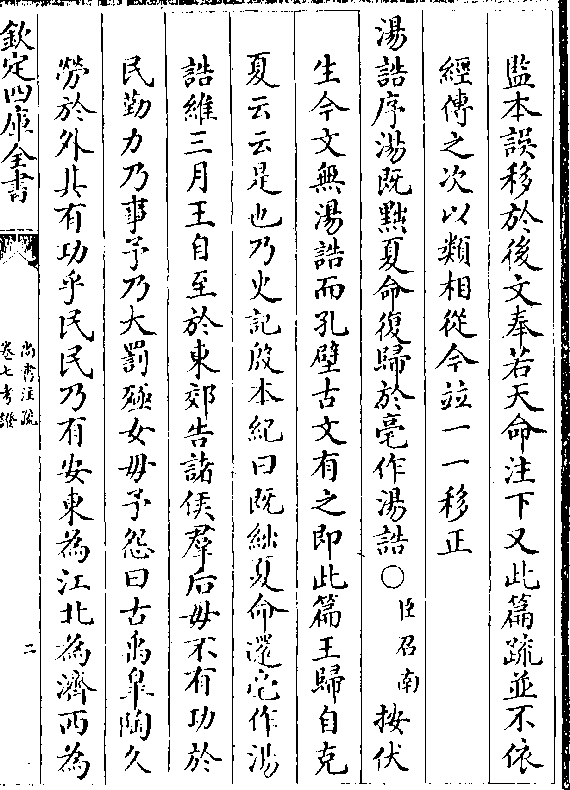 監本誤移於後文奉若天命注下又此篇疏並不依
經傳之次以類相從今並一一移正
湯誥序湯既黜夏命復歸於亳作湯誥○臣召南按伏
生今文無湯誥而孔壁古文有之即此篇王歸自克
夏云云是也乃史記殷本紀曰既絀夏命還亳作湯
誥維三月王自至於東郊告諸侯羣后毋不有功於
民勤力乃事予乃大罰殛女毋予怨曰古禹臯陶久
勞於外其有功乎民民乃有安東為江北為濟西為
欽定四庫全書
尚書注疏
卷七考證
二